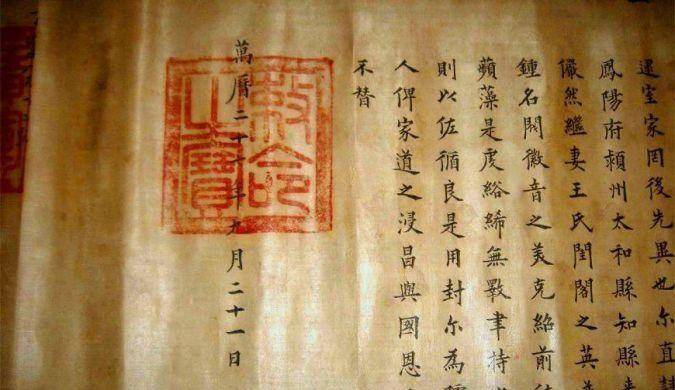 室家罔後先異也尔直隸
鳳陽府頴州太和縣知縣
儼然繼妻王氏閨閣之英
鍾名閥徽音之美克紹前
蘋藻是虔綌絺無斁聿持
則以佐循良是用封尔為孺
人俾家道之浸昌與國恩
不替
萬曆二十一年九月二十一日
敕命
之寶